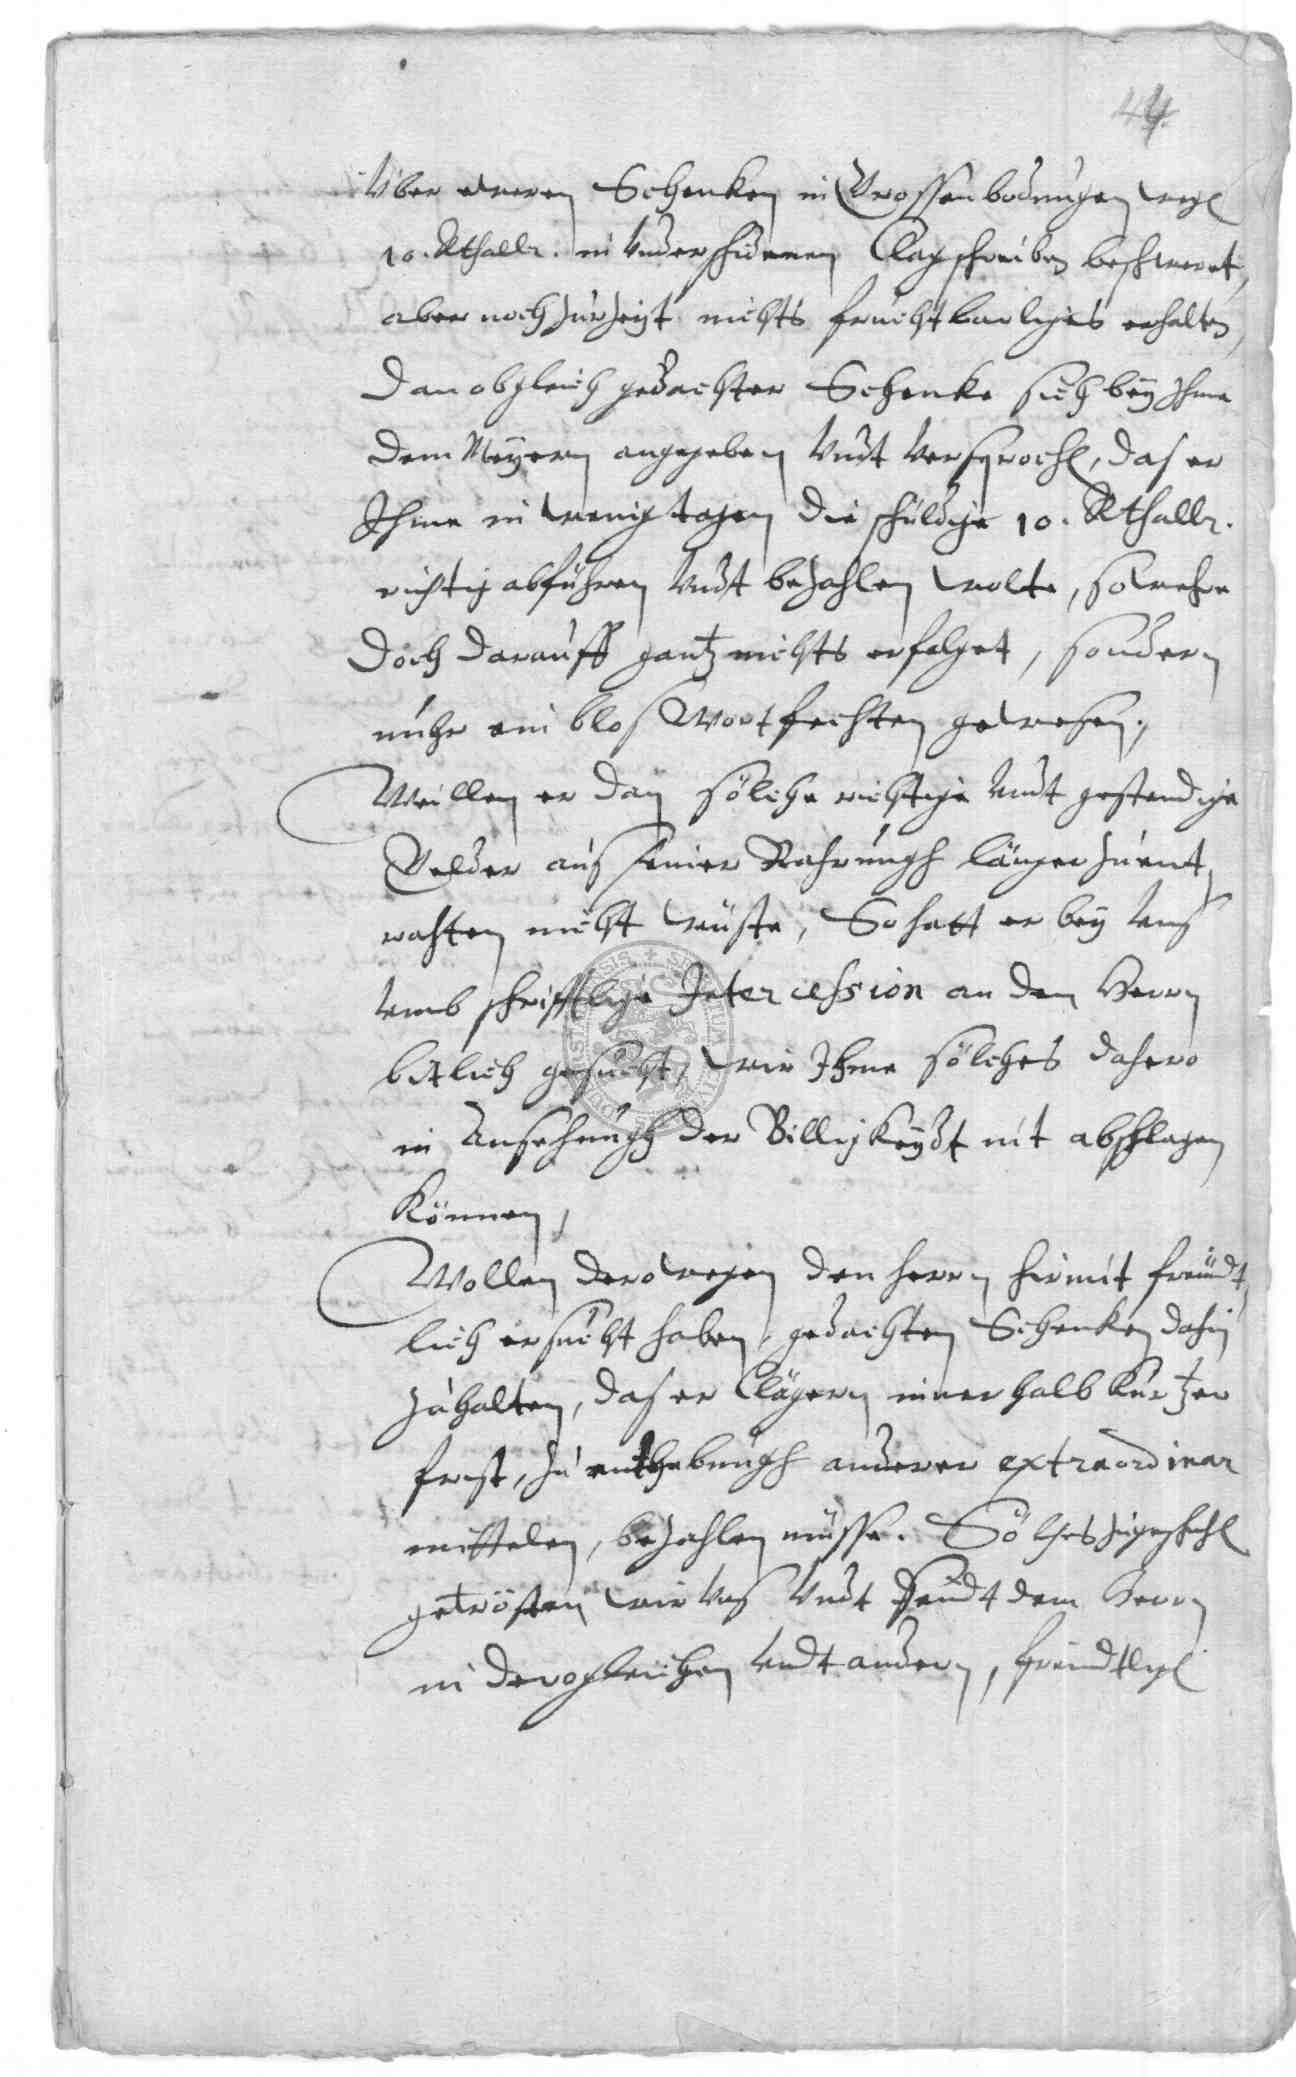 44.
Vber deren Schenken in Grossenbodungen wegl
10. Rthallr. in Vnderschidenen Clagschreiben beschweret,
aber noch zur Zeit nichts fruchtbarliges erhalten,
Dan obgleich gedachter Schenke sich bey Ihme
dem Meyern angegeben Vndt Versprochl, das er
Ihme in wenig tagen die schuldige 10. Rthallr.
richtig abführen Vndt bezahlen wolte, so wehre
doch darauff gantz nichts erfolget, sondern
nuhr ein blos Wortfechten gewesen,
Weillen er dan sölche richtige Vndt gestendige
Gelder aus seiner Nahrungh länger zu ent,
rahten nicht wüste, So hatt er bey Vns
Vmb schrifftlige Intercession an den Herrn
bitlich gesucht, wir Ihme sölches dahero
in Ansehungh der Billigkeydt nit abschlagen
können,
Wollen derowegen den herrn hirmit freundt,
lich ersucht haben, gedachten Schenken dahin
zuhalten, das er Clägern innerhalb kurtzer
frist, zu enthebungh anderer extraordinar
mittelen, bezahlen müsse. Sölches
getrösten wir Vns Vndt Seindt dem Herrn
in dergleichen Vndt andern, freundtligl